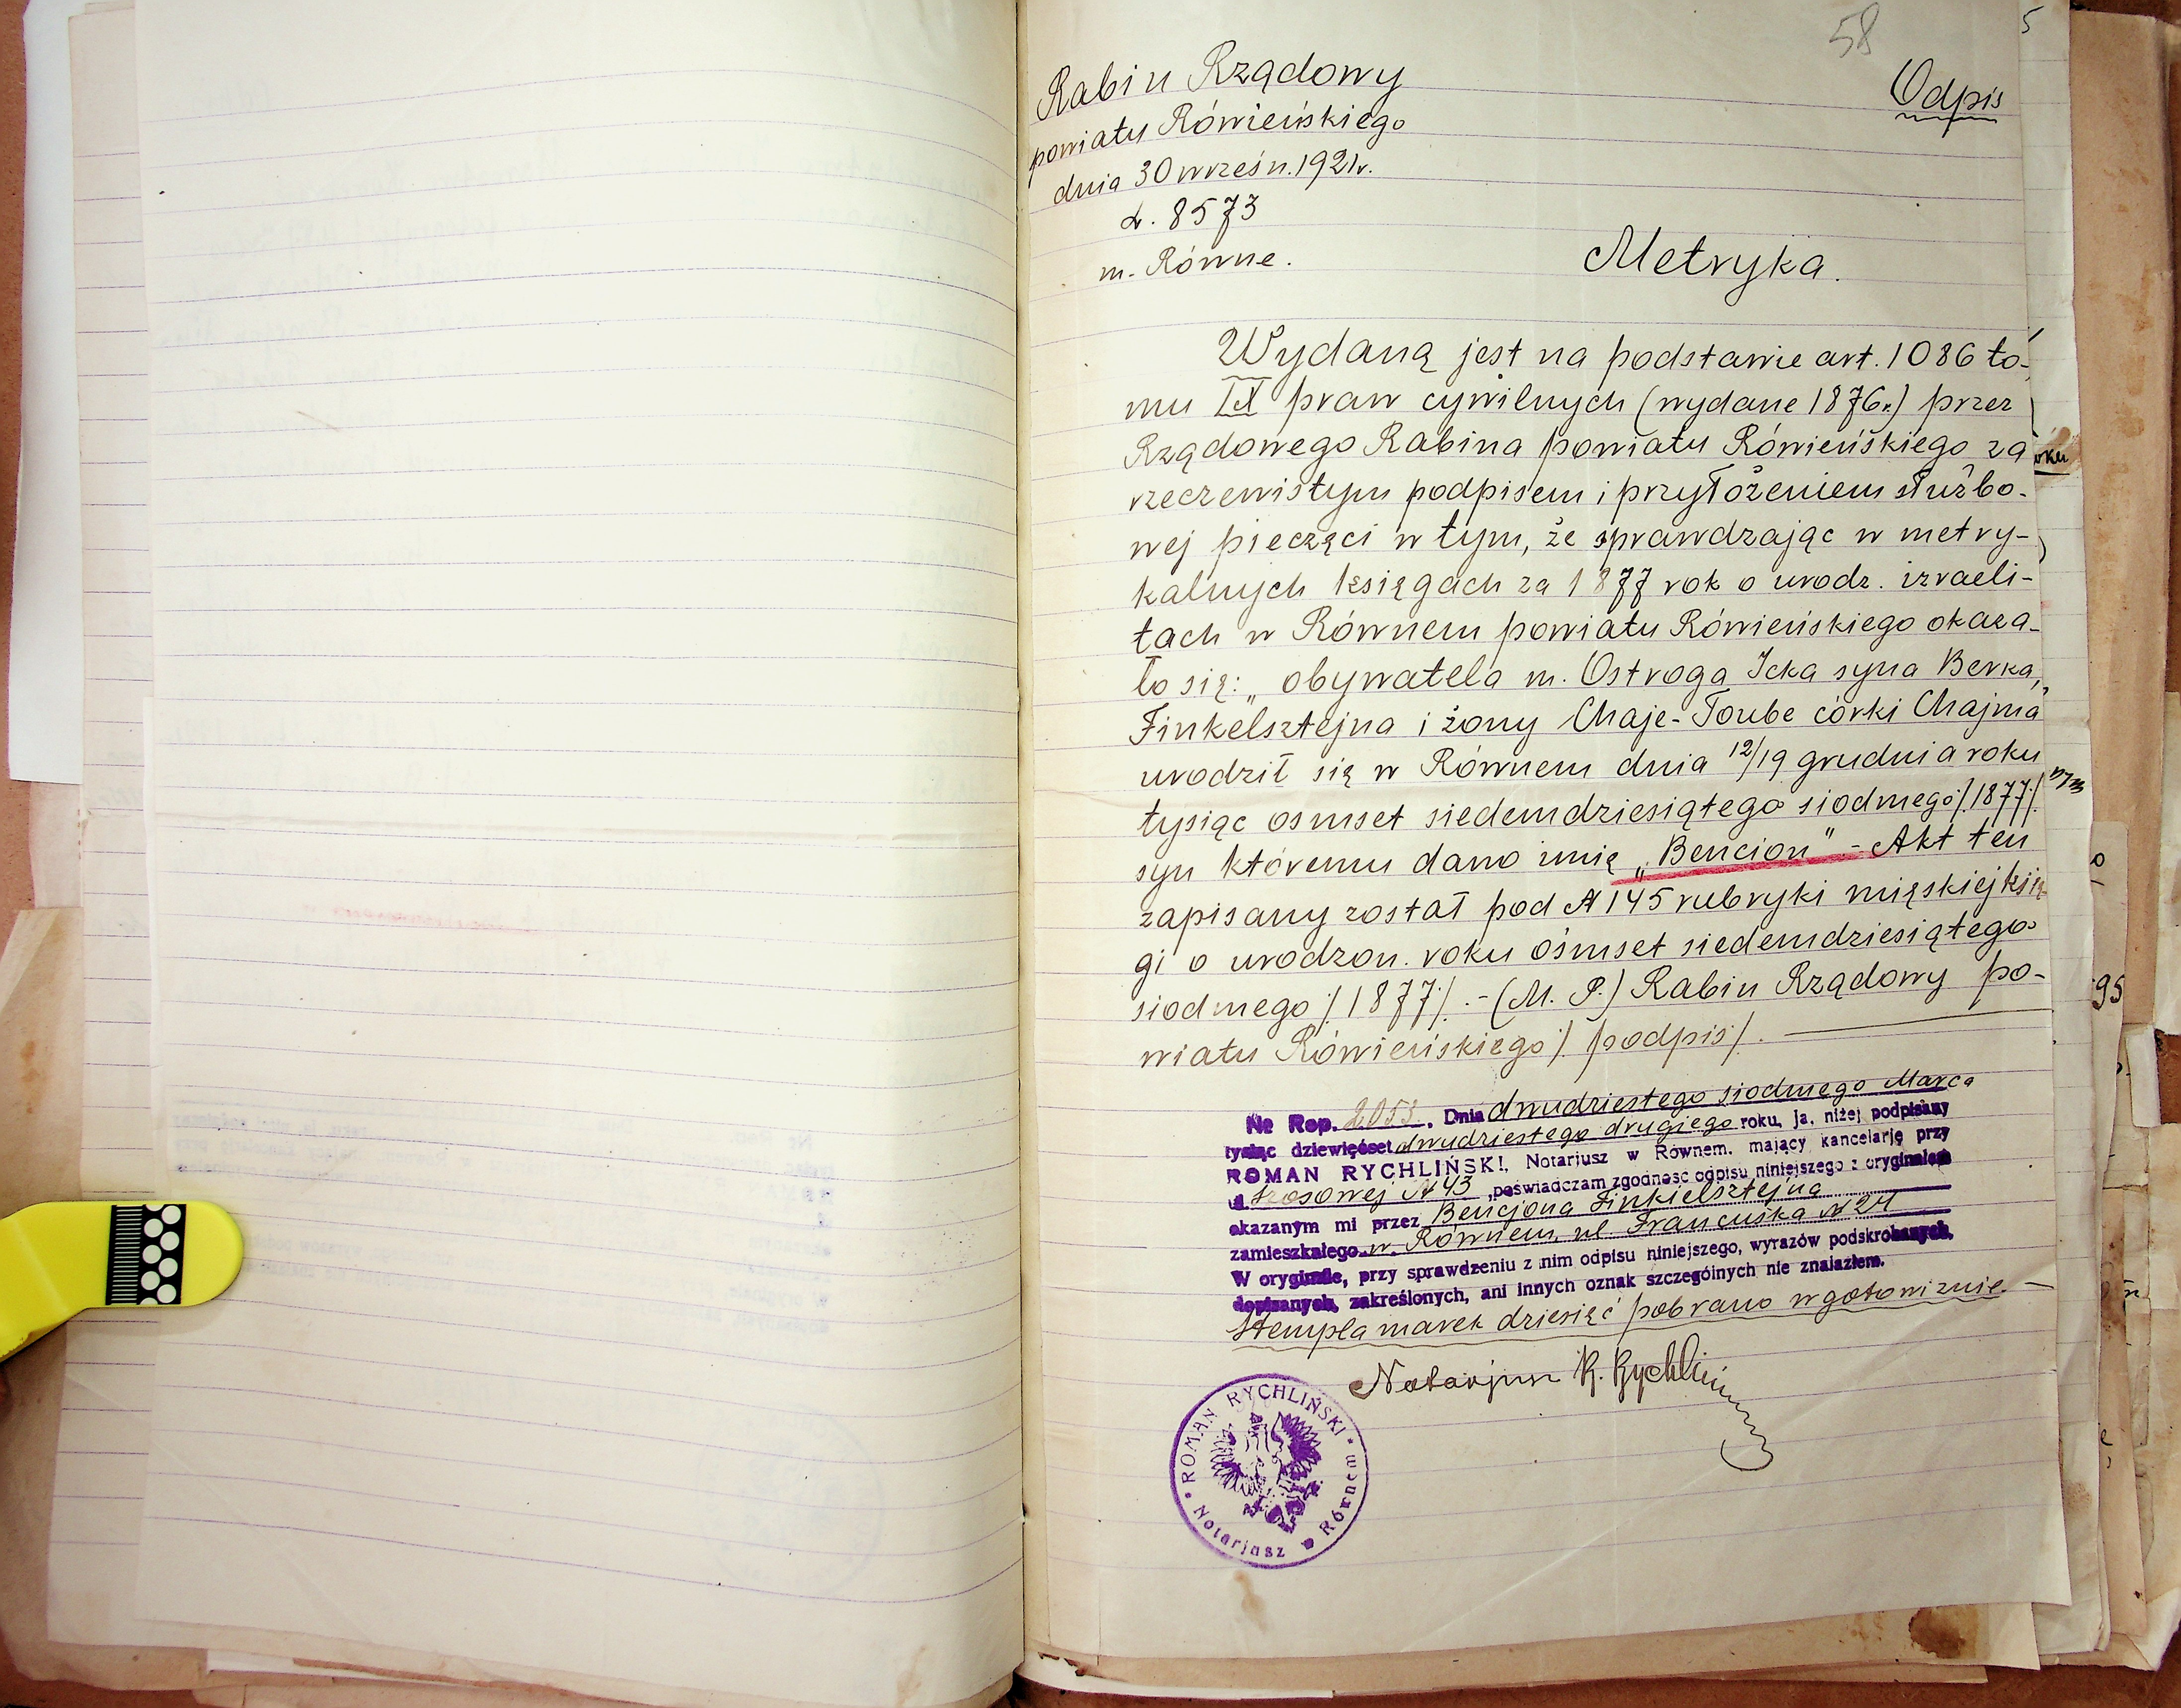 58
5
Rabin Rządowy
powiatu Rówieńskiego
dnia 30 wrześn. 1921r.
L. 8573
m. Równe.
Odpis
Metryka.
Wydaną jest na podstawie art. 1086 to-
mu IX praw cywilnych (wydane 1876r.) przez
Rządowego Rabina powiatu Rówieńskiego za
rzeczewistym podpisem i przyłożeniem służbo-
wej pieczęci w tym, że sprawdzając w metry-
kalnych księgach za 1877 rok o urodz. izraeli-
tach w Równem powiatu Rówieńskiego okaza-
ło się: „obywatela m. Ostroga Icka syna Berka,
Finkelsztejna i żony Chaje-Toube córki Chajma
urodził się w Równem dnia 12/19 grudnia roku
tysiąc osmset siedemdziesiątego siodmego /:1877:/
syn któremu dano imię „Bencion" - Akt ten
zapisany został pod № 145 rubryki mięskiej księ-
gi o urodzon. roku ośmset siedemdziesiątego
siodmego /:1877:/. - (M. P.) Rabin Rządowy po-
wiatu Rówieńskiego /:podpis:/.
№ Rep. 2053. Dnia dwudziestego siodmego Marca
tysiąc dziewięćset dwudziestego drugiego roku, ja, niżej podpisany
ROMAN RYCHLIŃSKI, Notarjusz w Równem, mający kancelarję przy
ul. Szosowej № 43, poświadczam zgodność odpisu niniejszego z oryginałem
okazanym mi przez Bencjona Finkielsztejna
zamieszkałego w Równem, ul. Francuska № 24
W oryginale, przy sprawdzeniu z nim odpisu niniejszego, wyrazów podskrobanych,
dopisanych, zakreślonych, ani innych oznak szczególnych nie znalazłem.
Stempla marek dziesięć pobrano w gotowiznie. —
Notarjusz R. Rychliński
ROMAN RYCHLIŃSKI
Notarjusz w Równem
95